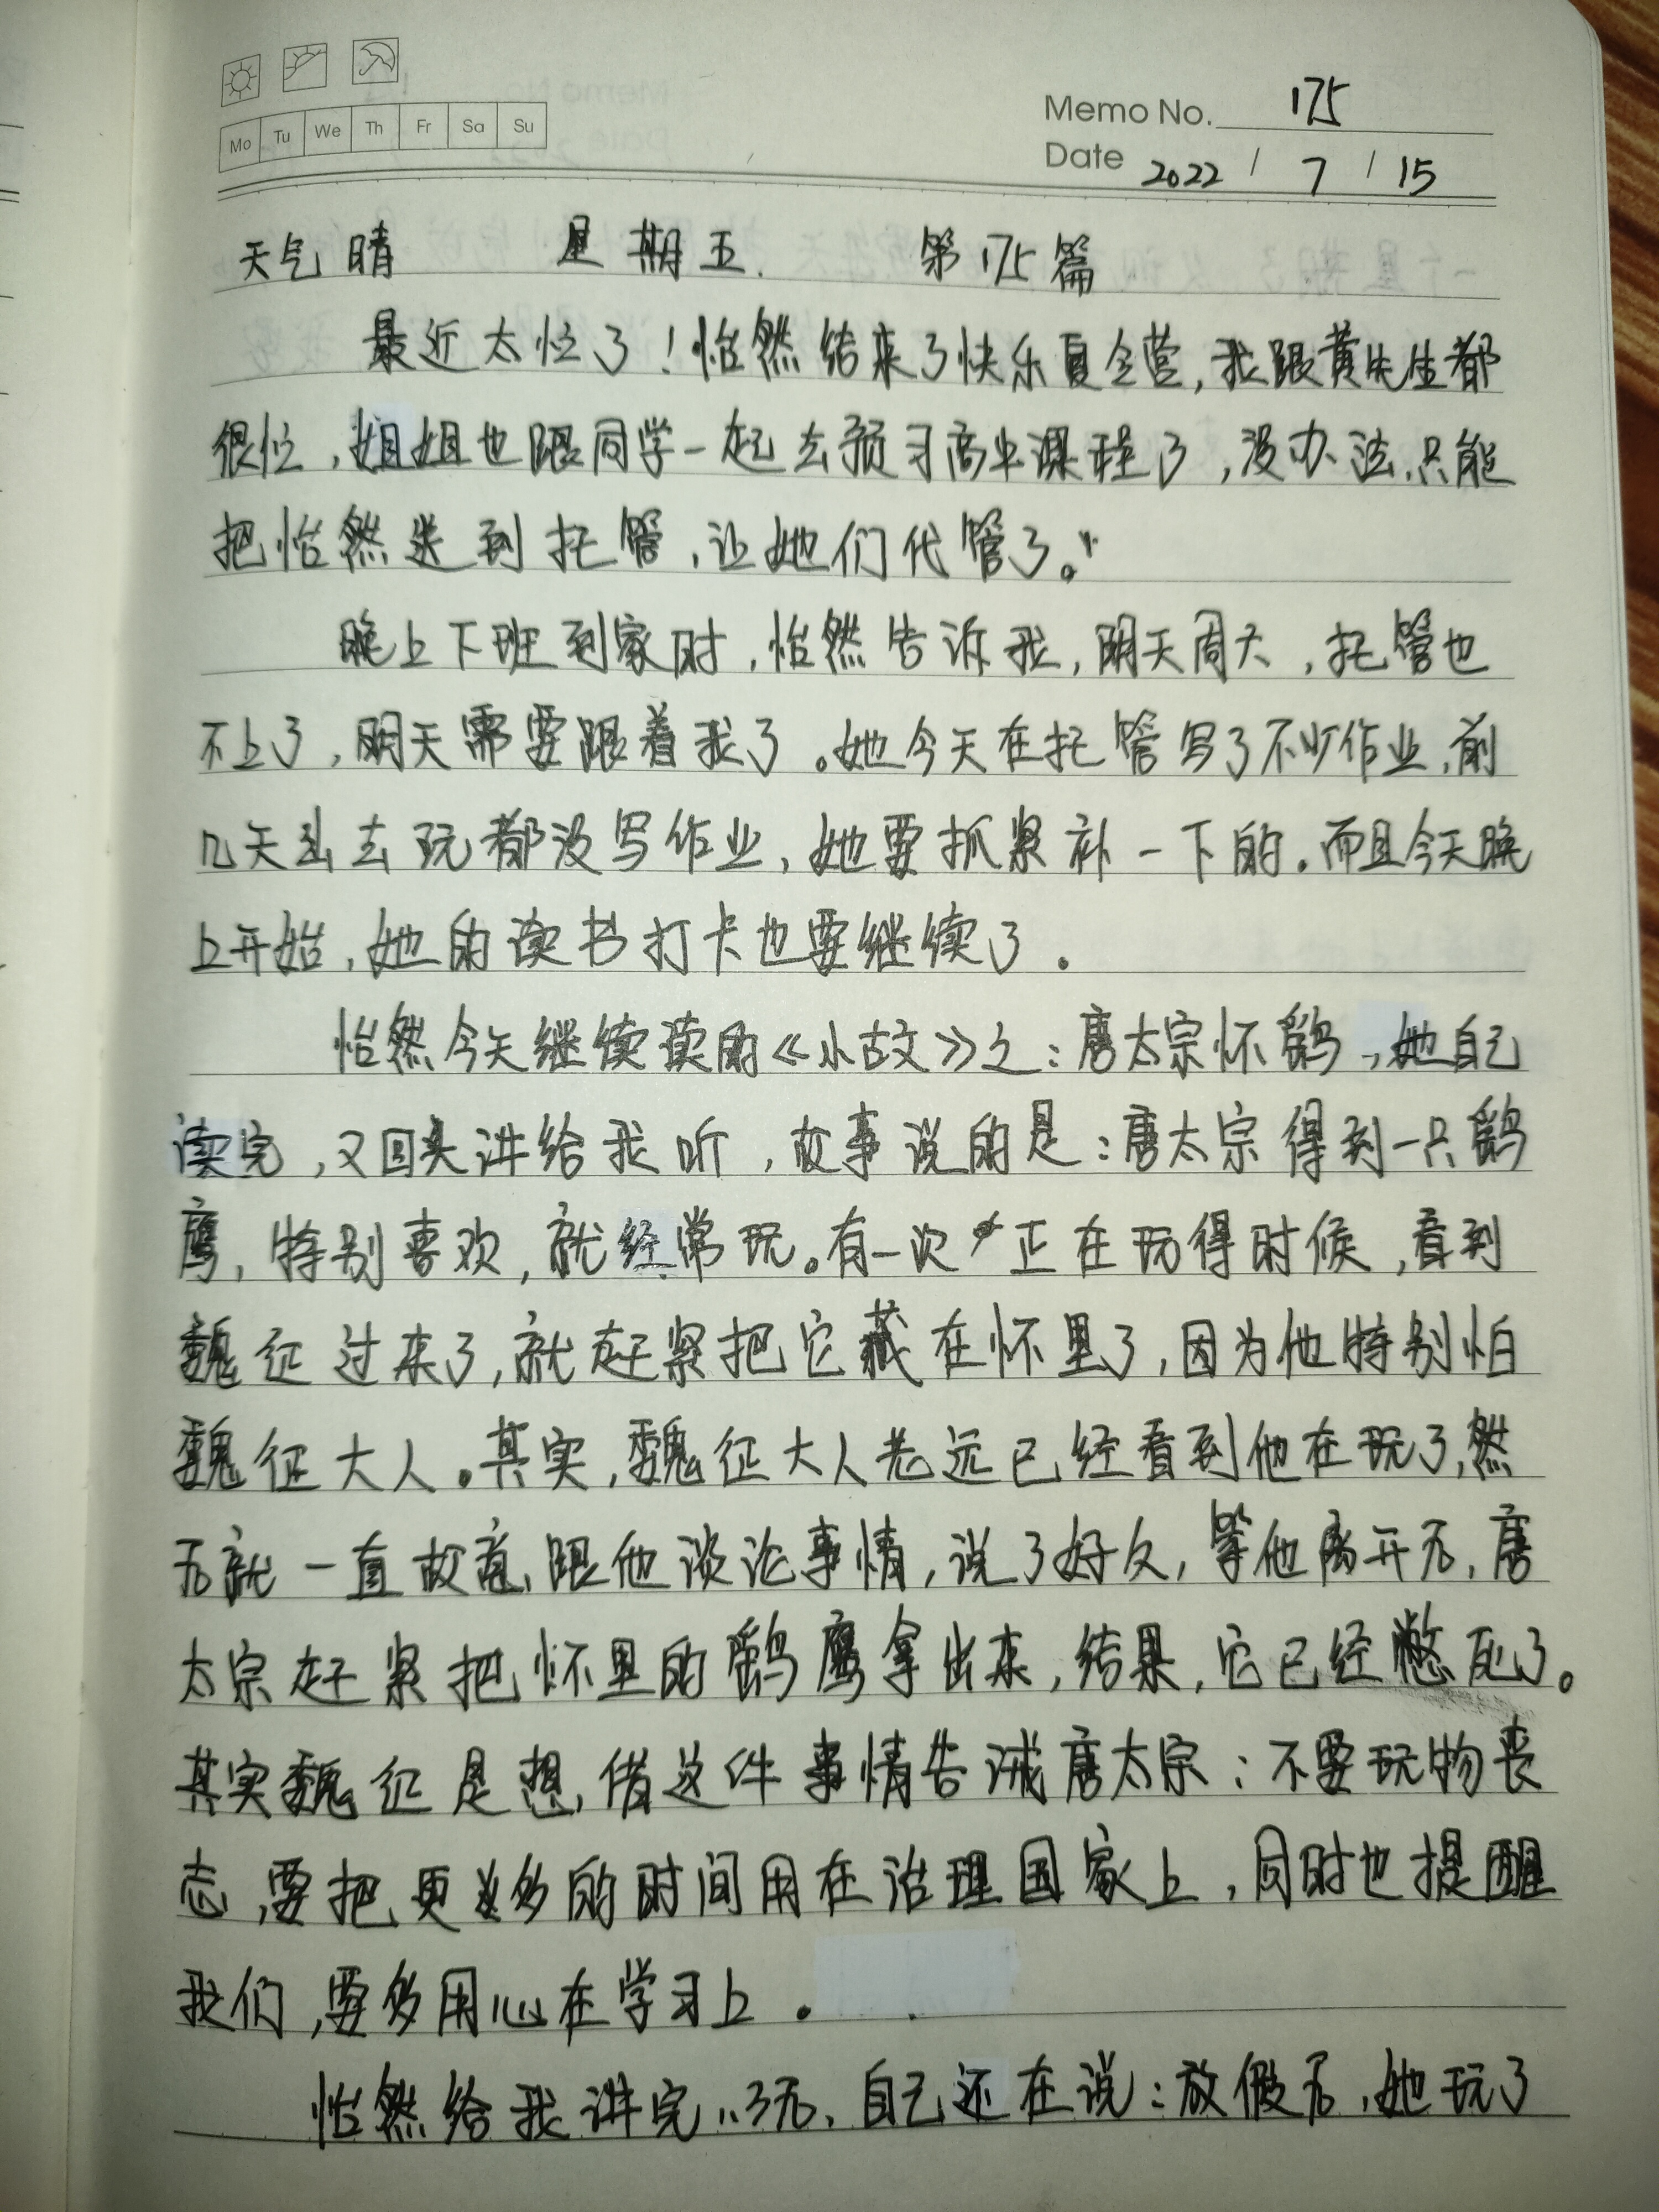 Mo Tu We Th Fr Sa Su
Memo No. 175
Date 2022 / 7 / 15
天气晴 星期五. 第175篇
最近太忙了！怡然结束了快乐夏令营，我跟黄先生都
很忙，姐姐也跟同学一起去预习高中课程了，没办法，只能
把怡然送到托管，让她们代管了。
晚上下班到家时，怡然告诉我，明天周六，托管也
不上了，明天需要跟着我了。她今天在托管写了不少作业，前
几天出去玩都没写作业，她要抓紧补一下的。而且今天晚
上开始，她的读书打卡也要继续了.
怡然今天继续读的《小古文》之：唐太宗怀鹞，她自己
读完，又回头讲给我听，故事说的是：唐太宗得到一只鹞
鹰，特别喜欢，就经常玩。有一次正在玩得时候，看到
魏征过来了，就赶紧把它藏在怀里了，因为他特别怕
魏征大人。其实，魏征大人老远已经看到他在玩了，然
后就一直故意跟他谈论事情，说了好久，等他离开后，唐
太宗赶紧把怀里的鹞鹰拿出来，结果，它已经憋死了。
其实魏征是想借这件事情告诫唐太宗：不要玩物丧
志，要把更多的时间用在治理国家上，同时也提醒
我们，要多用心在学习上.
怡然给我讲完了后，自己还在说：放假后，她玩了